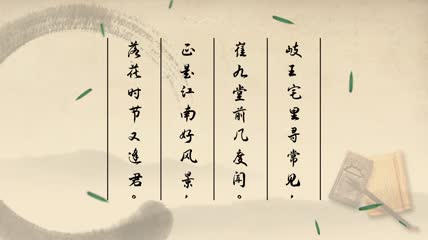 岐王宅里寻常见，
崔九堂前几度闻。
正是江南好风景，
落花时节又逢君。